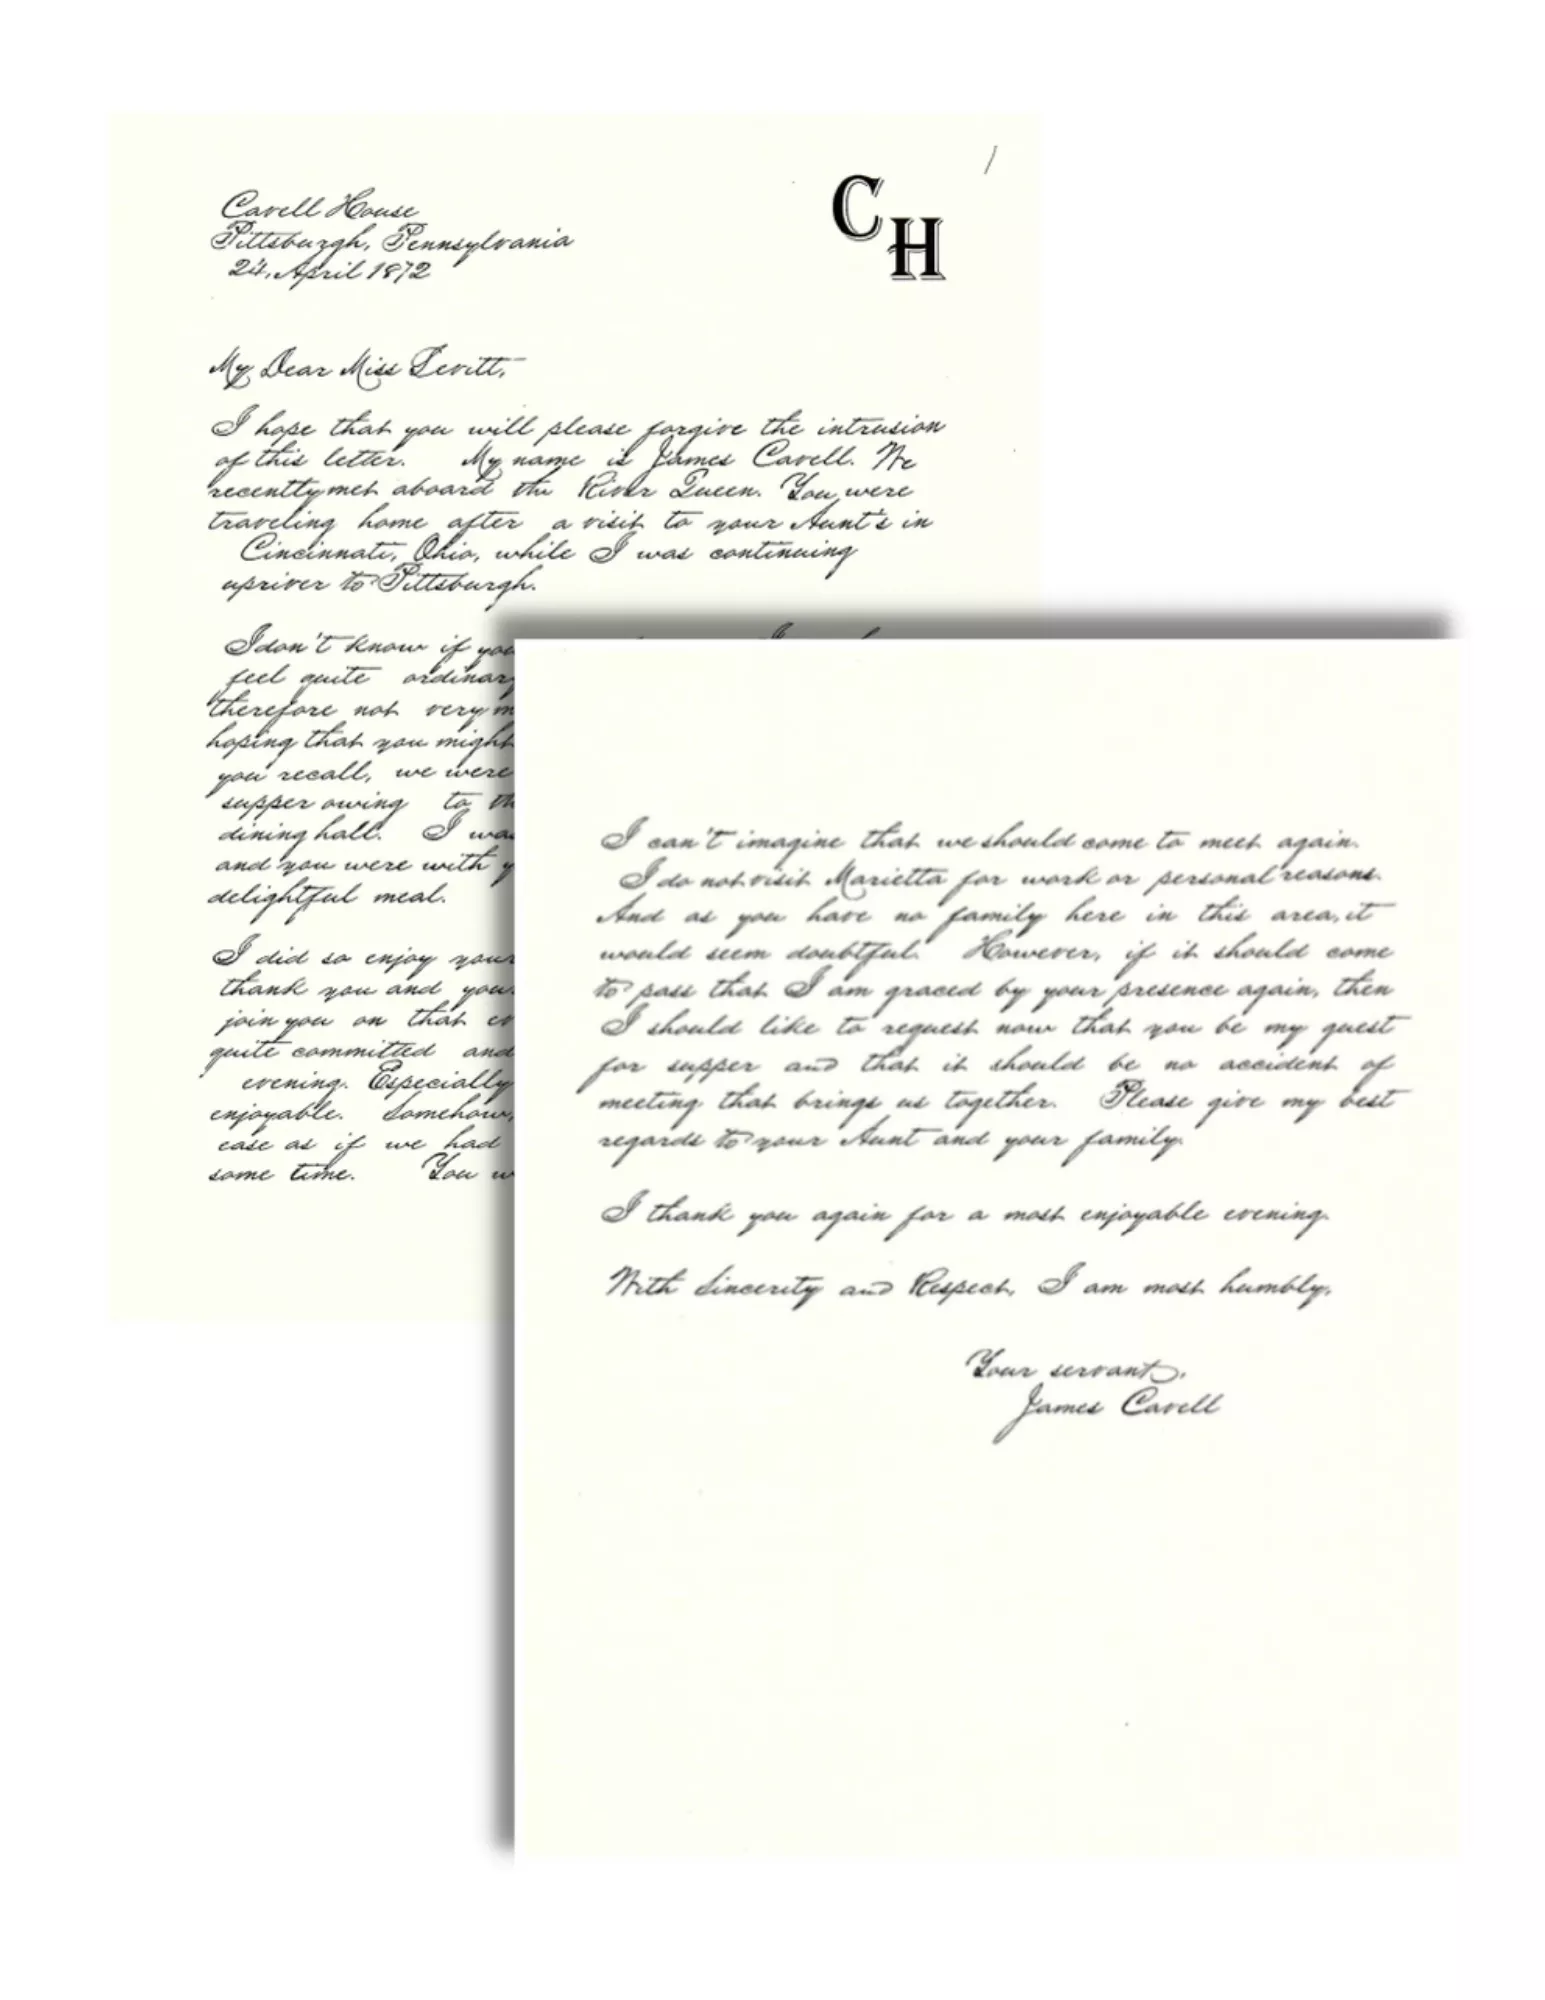 /
C
H
Cavell House
Pittsburgh, Pennsylvania
24, April 1872
My Dear Miss Levitt,
I hope that you will please forgive the intrusion
of this letter. My name is James Cavell. We
recently met aboard the River Queen. You were
traveling home after a visit to your Aunt's in
Cincinnati, Ohio, while I was continuing
upriver to Pittsburgh.
I don't know if you
feel quite ordinary
therefore not very
hoping that you might
you recall, we were
supper owing to
dining hall. I was
and you were with
delightful meal.
I did so enjoy your
thank you and you
join you on that
quite committed and
evening. Especially
enjoyable. Somehow,
ease as if we had
some time. You
I can't imagine that we should come to meet again.
I do not visit Marietta for work or personal reasons.
And as you have no family here in this area, it
would seem doubtful. However, if it should come
to pass that I am graced by your presence again, then
I should like to request now that you be my guest
for supper and that it should be no accident of
meeting that brings us together. Please give my best
regards to your Aunt and your family.
I thank you again for a most enjoyable evening.
With Sincerity and Respect, I am most humbly,
Your servant,
James Cavell